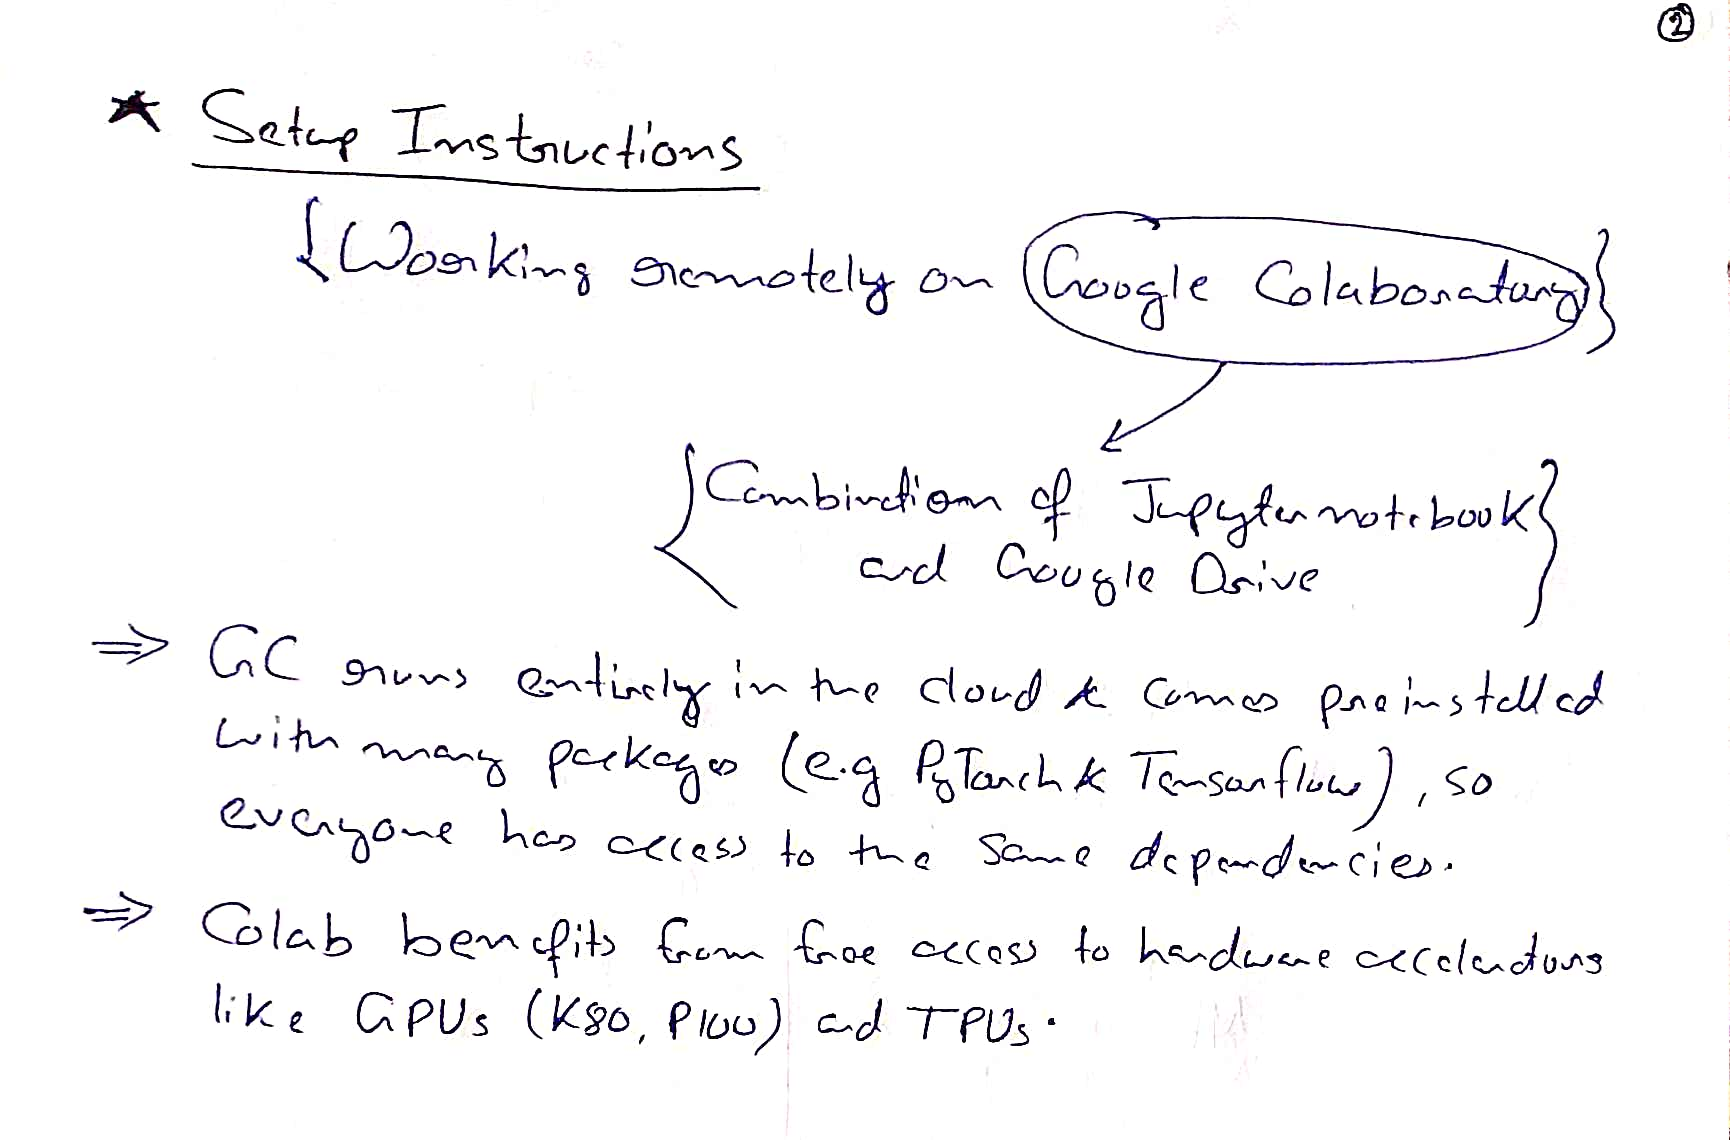 ②
* Setup Instructions
{Working remotely on Google Colaboratory}
{Combination of Jupyter notebook
and Google Drive}
⇒ GC runs entirely in the cloud & comes preinstalled
with many packages (e.g PyTorch & Tensorflow), so
everyone has access to the same dependencies.
⇒ Colab benefits from free access to hardware accelerators
like GPUs (K80, P100) and TPUs.